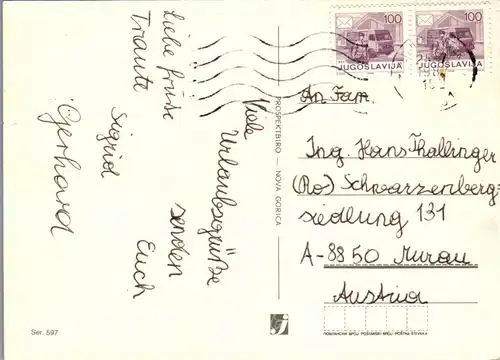 Liebe Grüße
Traute
Sigrid
Gerhard
Viele
Urlaubsgrüße
senden
Euch
100
JUGOSLAVIJA
100
JUGOSLAVIJA
An Fam.
Ing. Hans Thallinger
(Ro) Schwarzenberg-
siedlung 131
A-8850 Murau
Austria
PROSPEKTBIRO — NOVA GORICA
Ser. 597